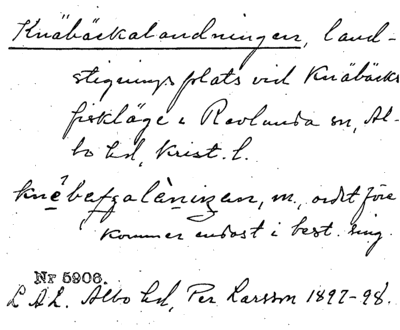 Knäbäckalandningen, land-
stigningsplats vid Knäbäcks
fiskläge i Ravlunda sn, Al-
bo hd, Krist. l.
m., ordet före
kommer endast i best. sing.
Nr 5906.
L.A.L. Albo hd, Per Larsson 1897-98.